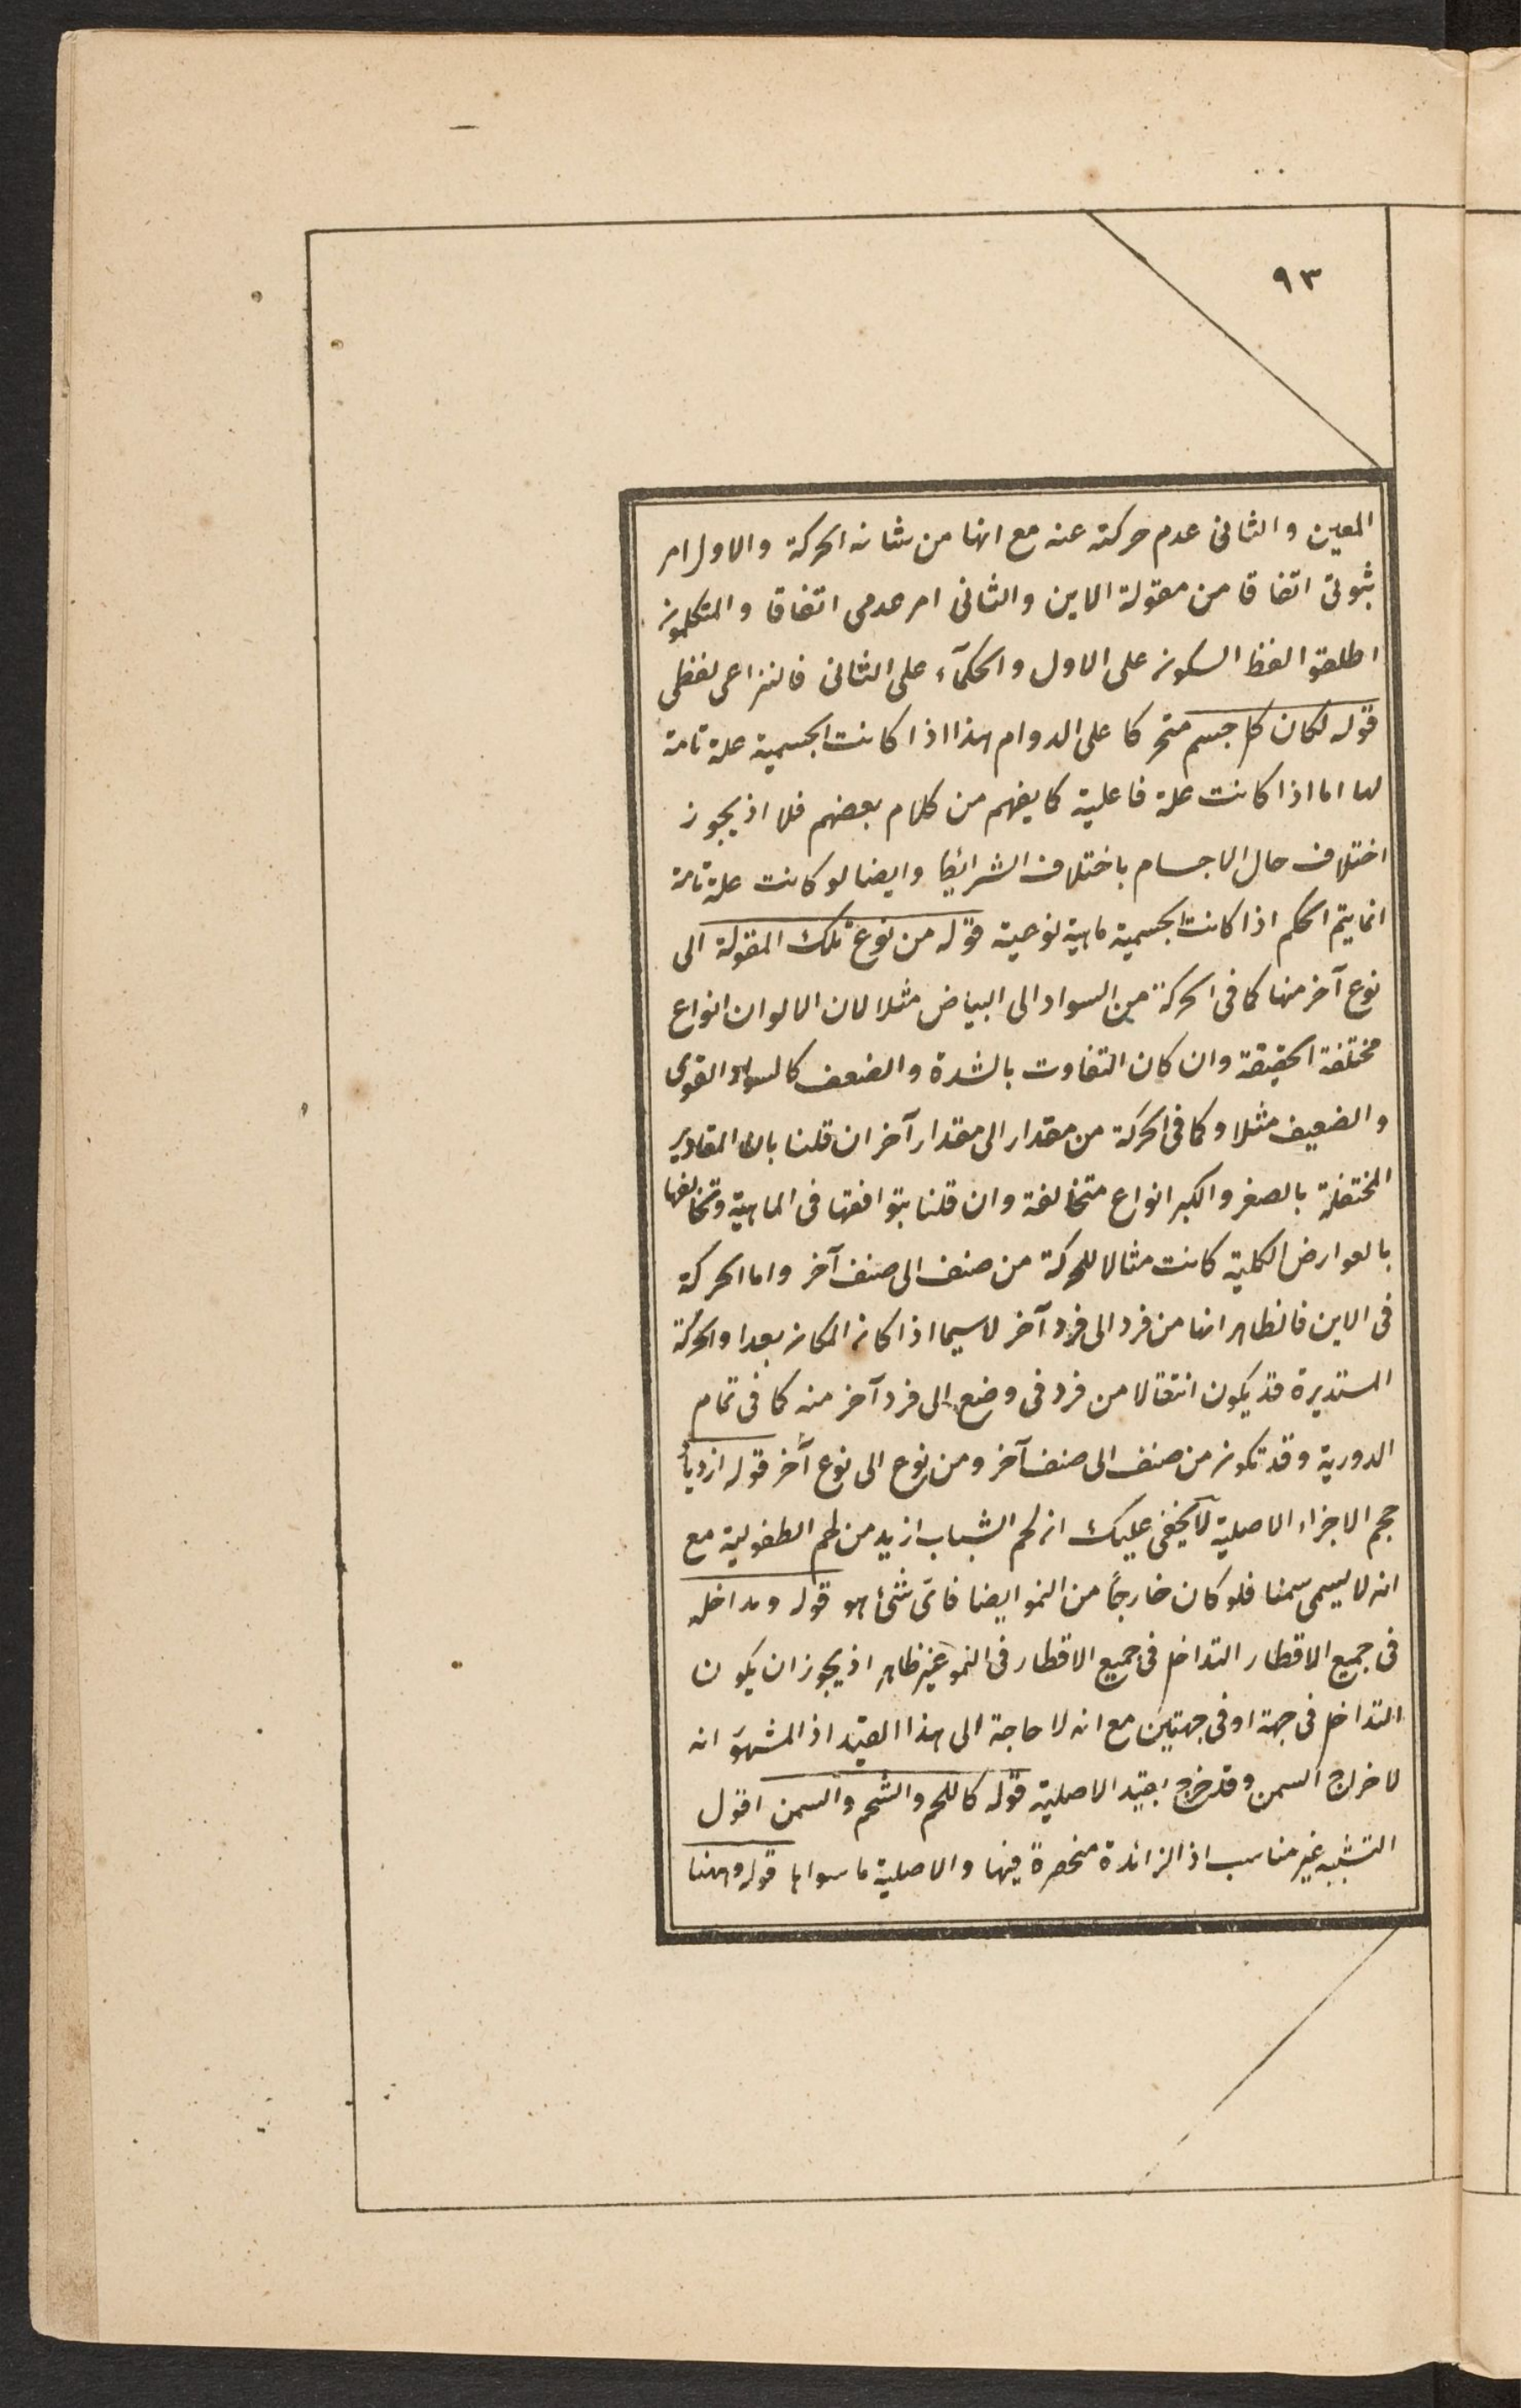 ٩٣
المعين والثانى عدم حركته عنه مع انها من شانه الحركة والاول امر
ثبوتى اتفاقا من مقولة الاين والثانى امر عدمى اتفاقا والمتكلمون
اطلقوا لفظ السكون على الاول والحكمآء على الثانى فالنزاعى لفظى
قوله لكان كل جسم متحركا على الدوام هذا اذا كانت الجسمية علة تامة
لها اما اذا كانت علة فاعلية كما يفهم من كلام بعضهم فلا اذ يجوز
اختلاف حال الاجسام باختلاف الشرائط وايضا لو كانت علة تامة
انما يتم الحكم اذا كانت الجسمية ماهية نوعية قوله من نوع تلك المقولة الى
نوع آخر منها كما فى الحركة من السواد الى البياض مثلا لان الالوان انواع
مختلفة الحقيقة وان كان التفاوت بالشدة والضعف كالسواد القوى
والضعيف مثلا وكما فى الحركة من مقدار الى مقدار آخر ان قلنا بان المقادير
المختفلة بالصغر والكبر انواع متخالفة وان قلنا بتوافقها فى الماهية وتخالفها
بالعوارض الكلية كانت مثالا للحركة من صنف الى صنف آخر واما الحركة
فى الاين فالظاهر انها من فرد الى فرد آخر لاسيما اذا كان المكان بعدا والحركة
المستديرة قد يكون انتقالا من فرد فى وضع الى فرد آخر منه كما فى تمام
الدورية وقد تكون من صنف الى صنف آخر ومن نوع الى نوع آخر قوله ازدياد
حجم الاجزاء الاصلية لا يخفى عليك ان لحم الشباب ازيد من لحم الطفولية مع
انه لا يسمى سمنا فلو كان خارجاً من النمو ايضا فاىّ شئ هو قوله ومداخله
فى جميع الاقطار التداخل فى جميع الاقطار فى النمو غير ظاهر اذ يجوز ان يكون
التداخل فى جهة او فى جهتين مع انه لا حاجة الى هذا القيد اذ المشهور انه
لاخراج السمن وقد خرج بقيد الاصلية قوله كاللحم والشحم والسمن اقول
التشبيه غير مناسب اذ الزائدة منحصرة فيها والاصلية ما سواها قوله وههنا